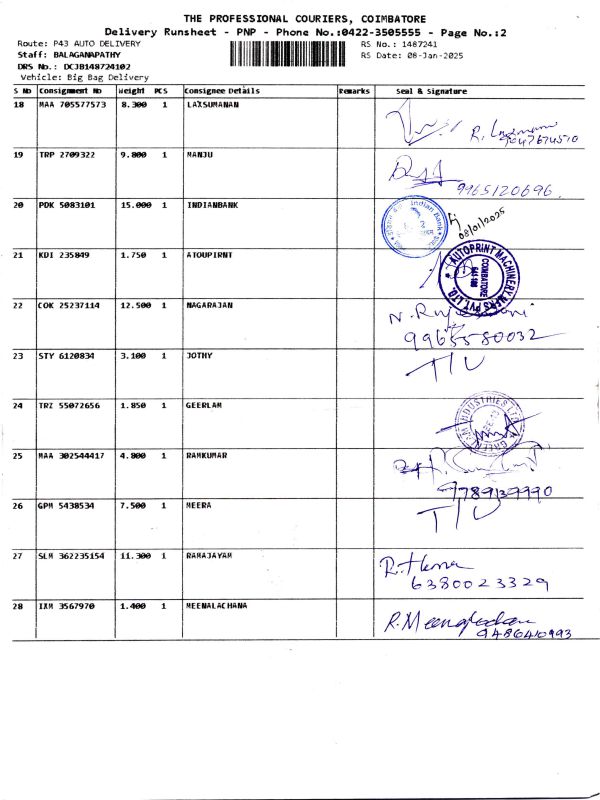 THE PROFESSIONAL COURIERS, COIMBATORE
Delivery Runsheet - PNP - Phone No.:0422-3505555 - Page No.:2
Route: P43 AUTO DELIVERY RS No.: 1487241
Staff: BALAGANAPATHY RS Date: 08-Jan-2025
DRS No.: DCJB148724102
Vehicle: Big Bag Delivery
S No Consignment No Weight PCS Consignee Details Remarks Seal & Signature
18 MAA 705577573 8.300 1 LAXSUMANAN
19 TRP 2709322 9.800 1 MANJU
9965120696.
20 PDK 5083101 15.000 1 INDIANBANK
Indian Bank
08/01/2025
21 KDI 235849 1.750 1 ATOUPIRNT
AUTOPRINT MACHINERY MFRS PVT. LTD.
COIMBATORE
22 COK 25237114 12.500 1 NAGARAJAN
9965580032
23 STY 6120834 3.100 1 JOTHY
T/U
24 TRZ 55072656 1.850 1 GEERLAM
INDUSTRIES LTD
25 MAA 302544417 4.800 1 RAMKUMAR
9789139990
26 GPM 5438534 7.500 1 MEERA
T/U
27 SLM 362235154 11.300 1 RAMAJAYAM
R. Hema
6380023329
28 IXM 3567970 1.400 1 MEENALACHANA
9486410993